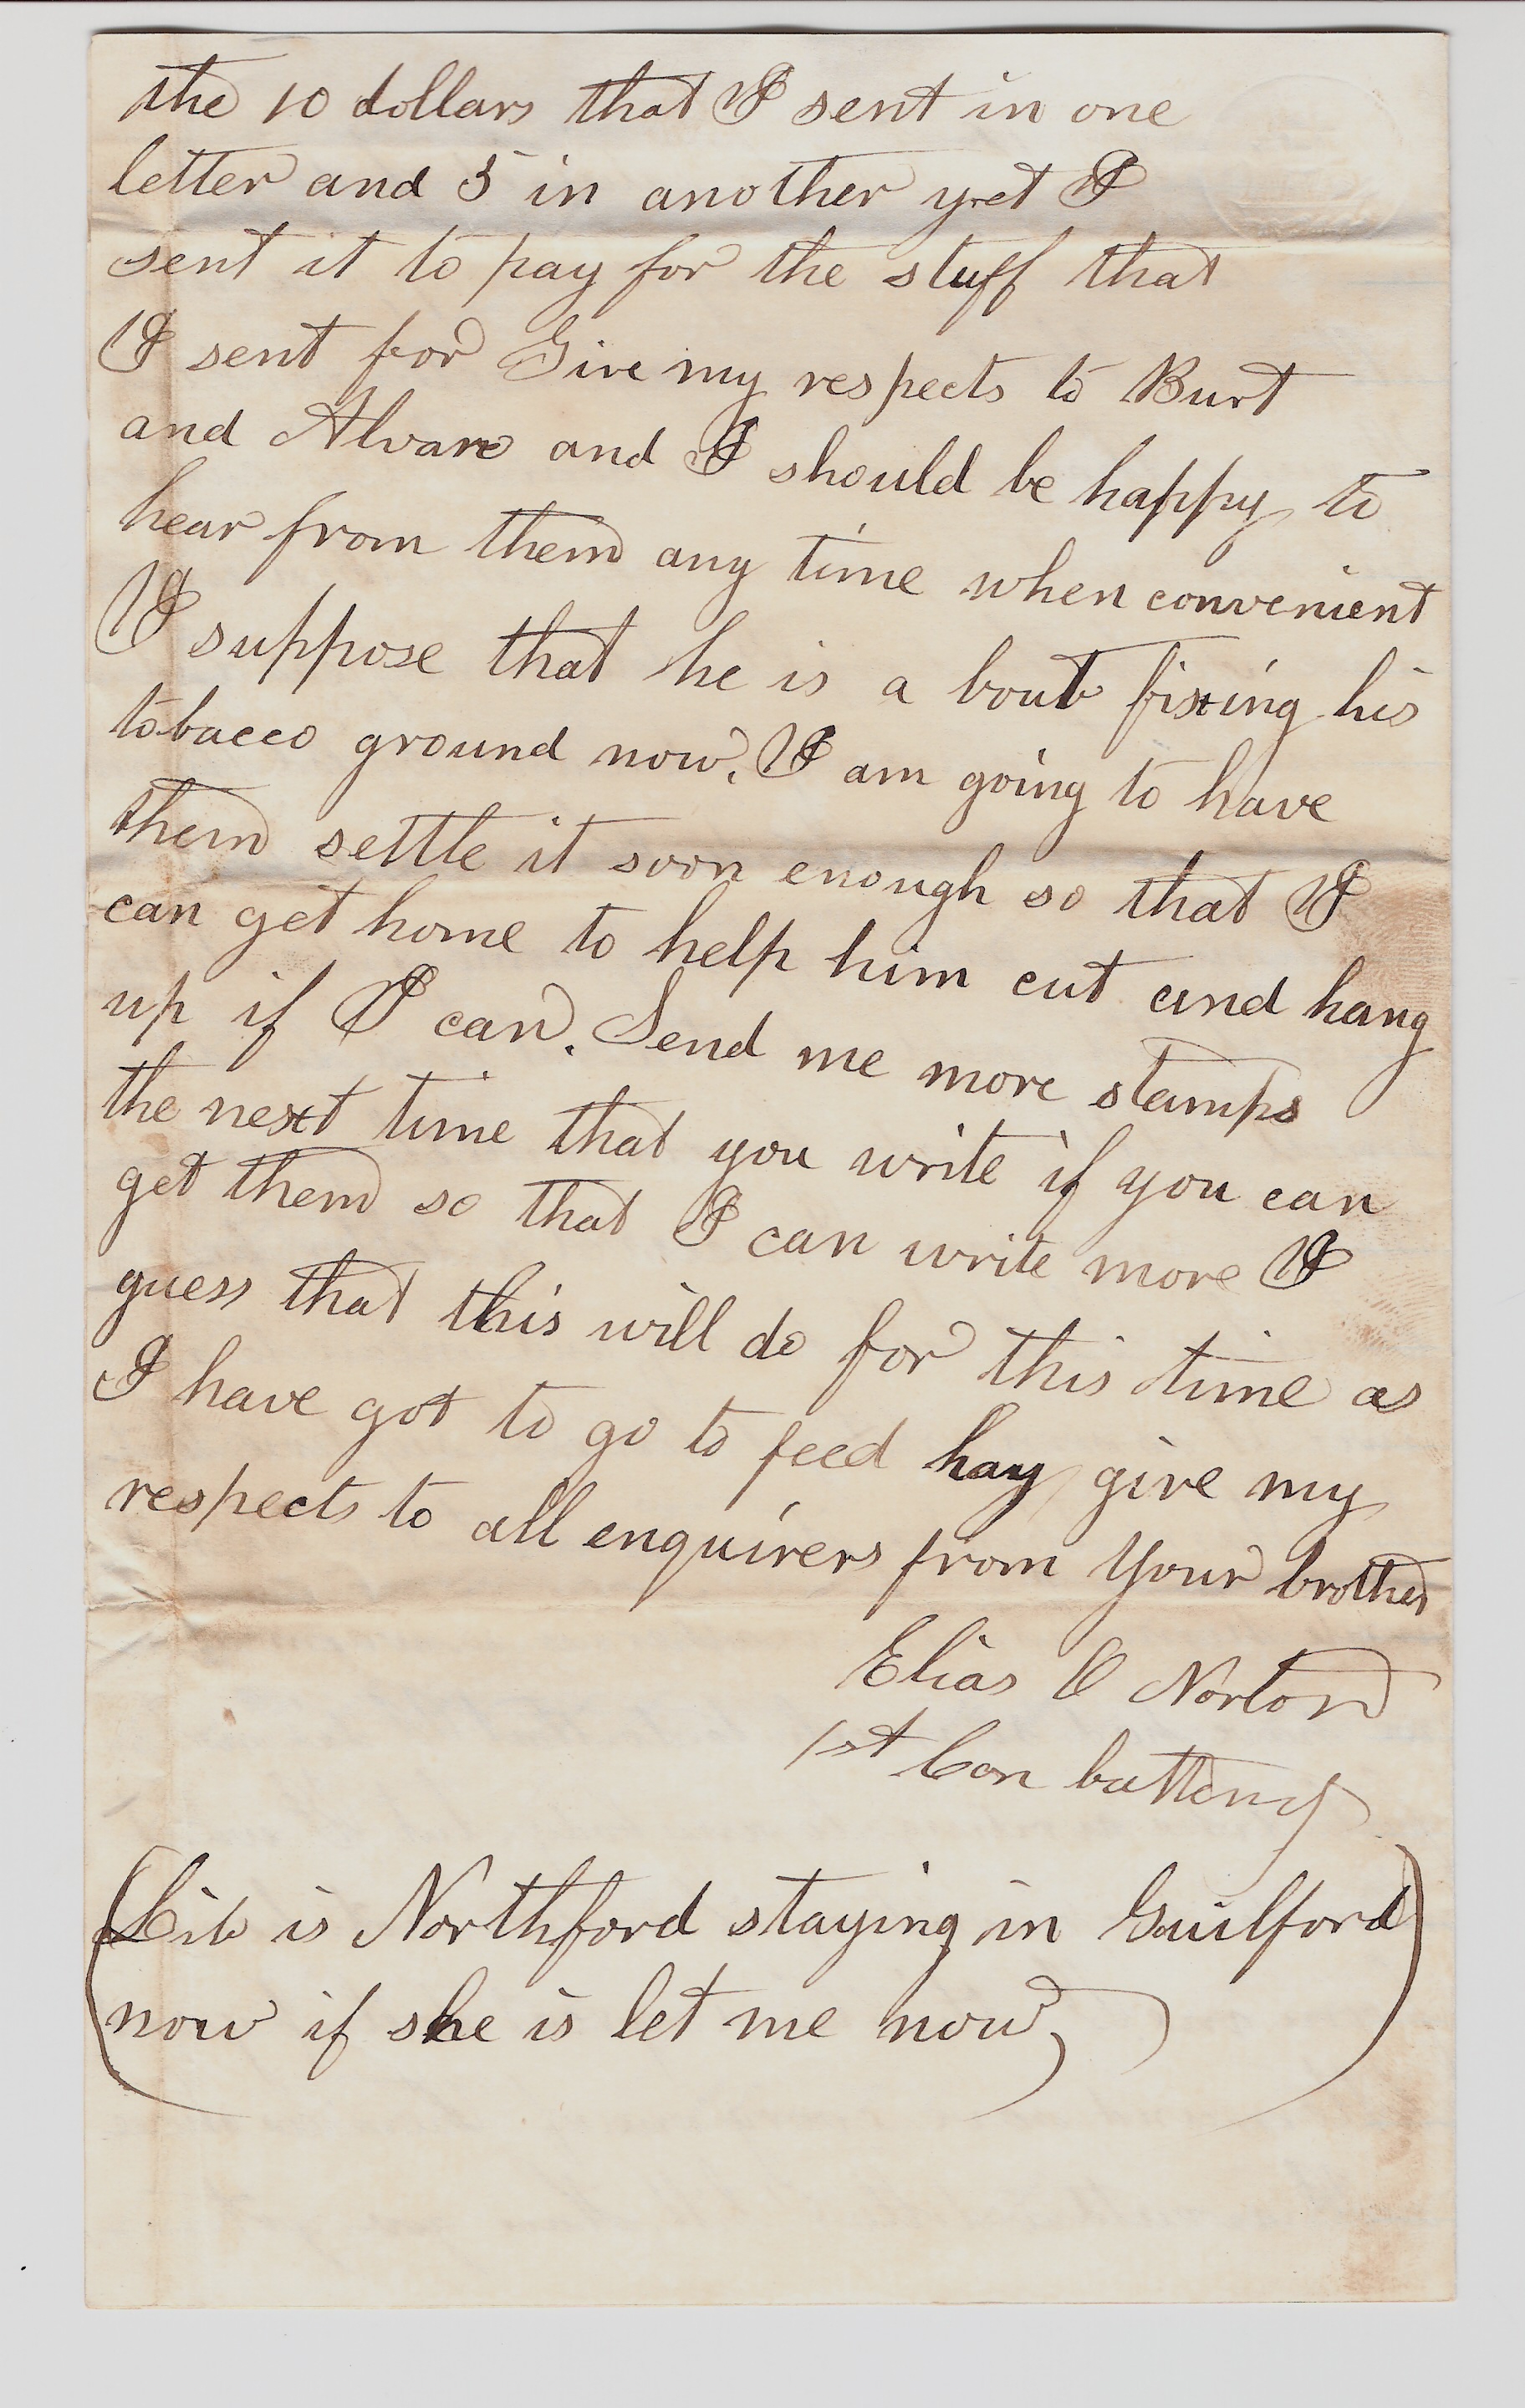 the 10 dollars that I sent in one
letter and 5 in another yet I
sent it to pay for the stuff that
I sent for Give my respects to Burt
and Alvan and I should be happy to
hear from them any time when convenient
I suppose that he is a bout fixing his
tobacco ground now. I am going to have
them settle it soon enough so that I
can get home to help him cut and hang
up if I can. Send me more stamps
the next time that you write if you can
get them so that I can write more I
guess that this will do for this time as
I have got to go to feed hay give my
respects to all enquirers from Your brother
Elias C Norton
1st Con battery
(Lib is Northford staying in Guilford
now if she is let me now)